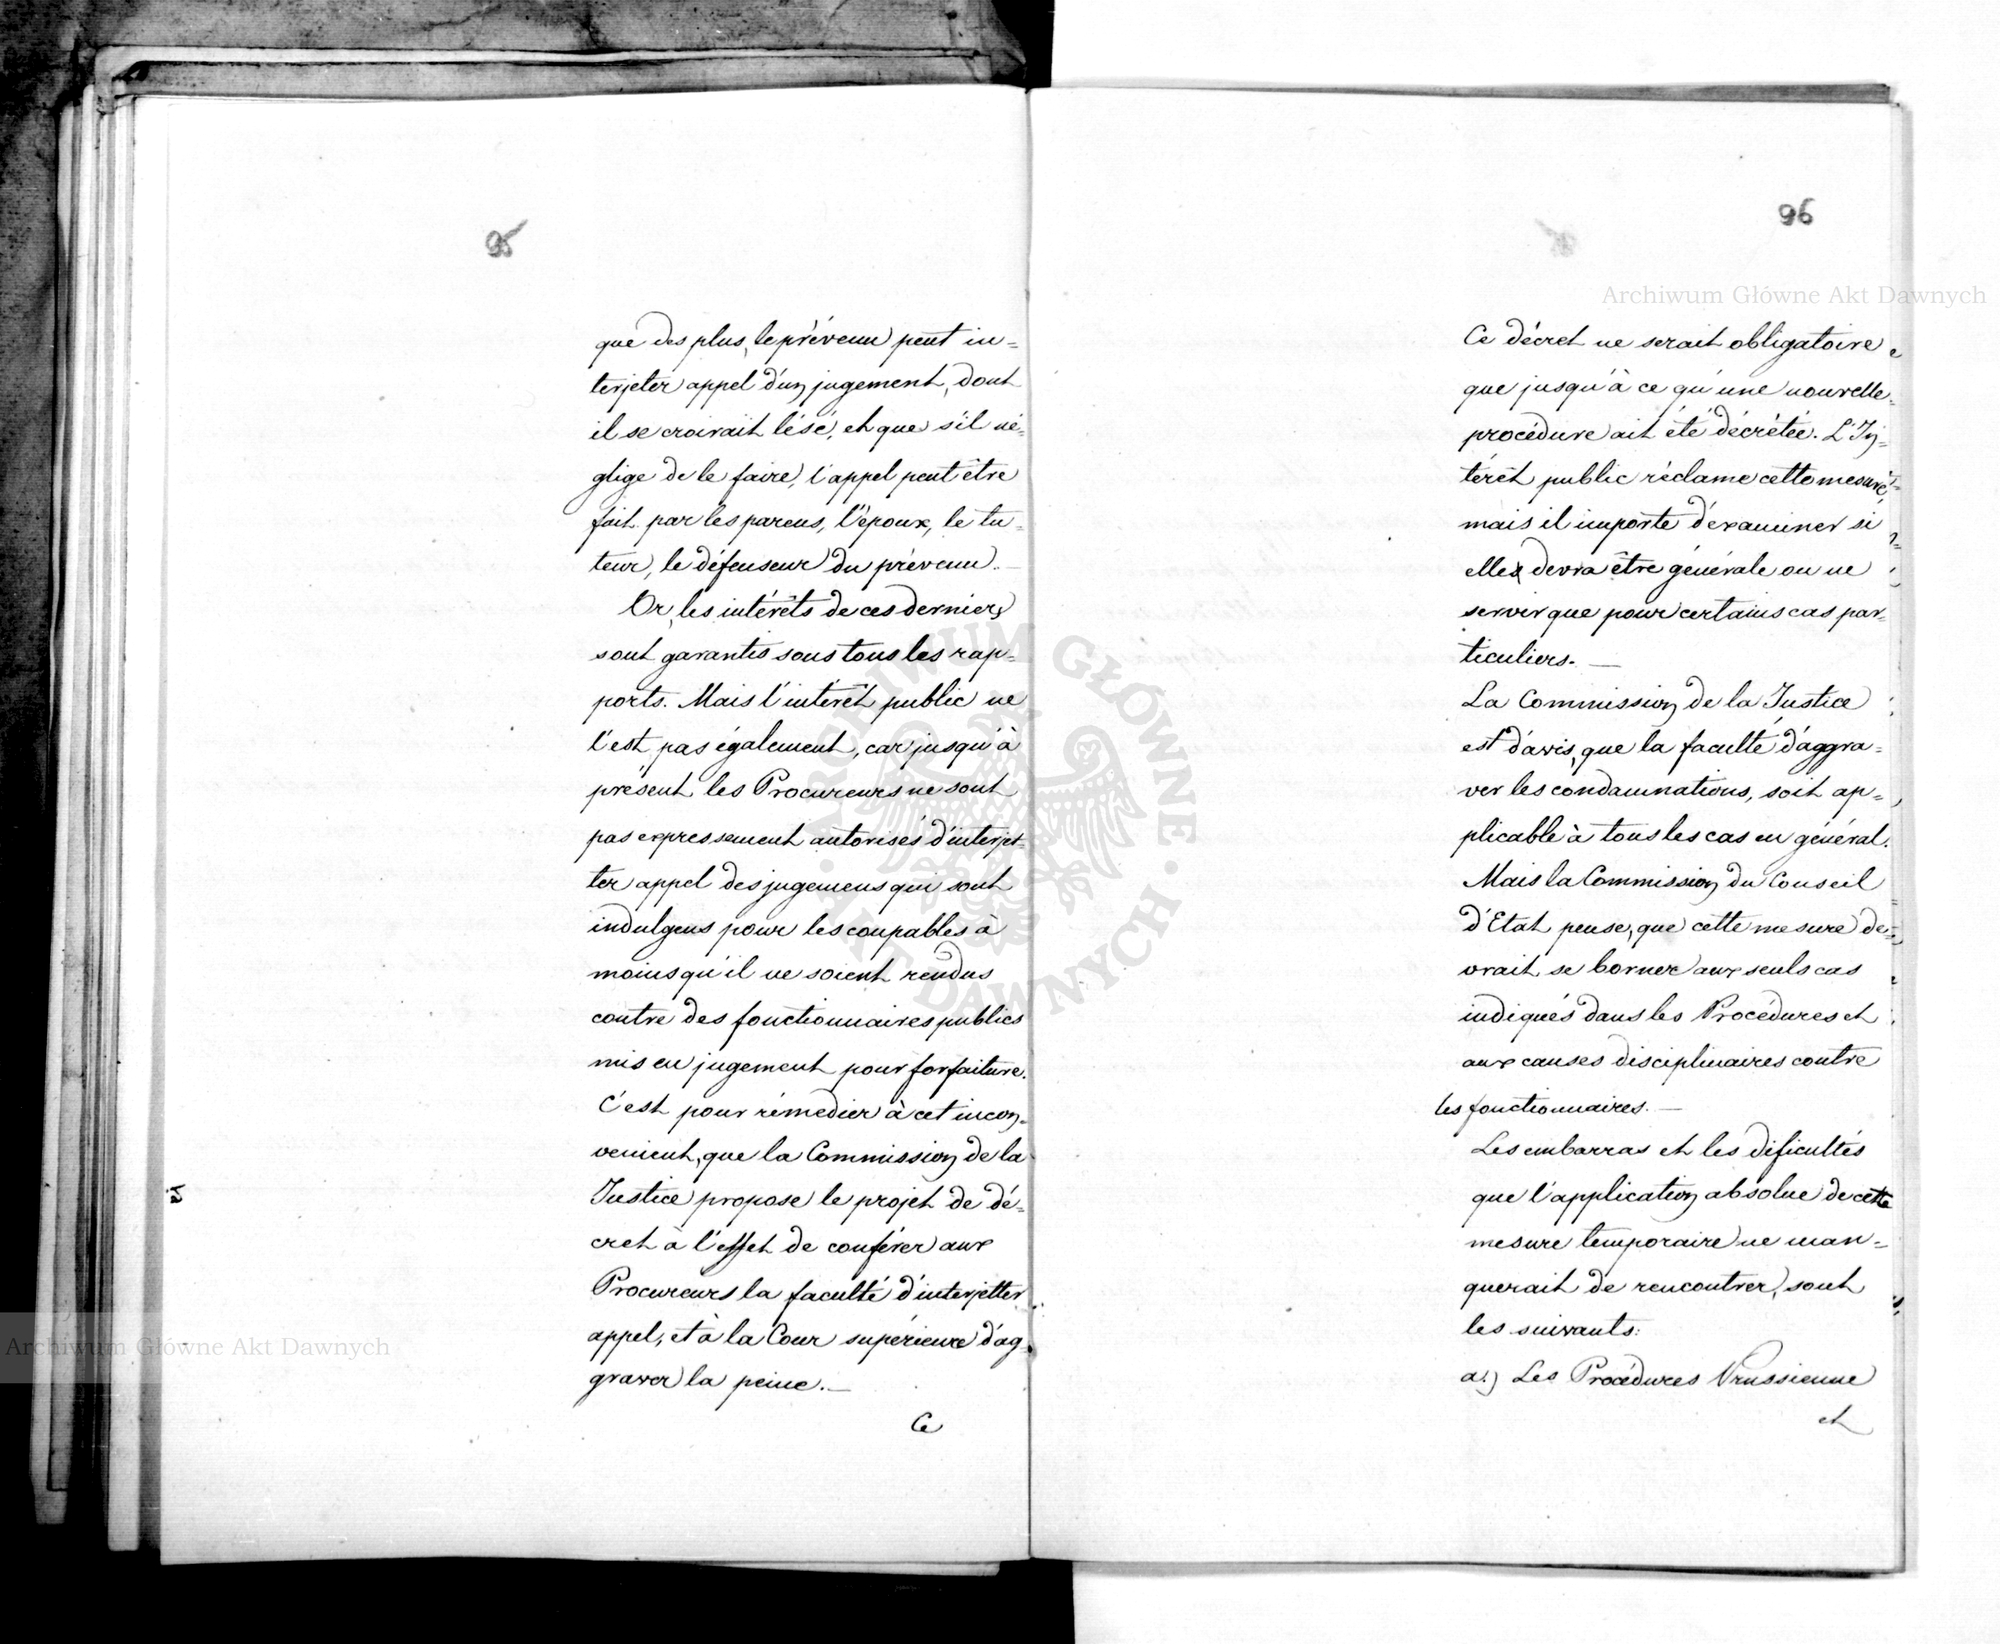 95
que des plus, le prévenu peut in=
terjeter appel d'un jugement, dont
il se croirait lésé, et que s'il né=
glige de le faire, l'appel peut être
fait par les parens, l'époux, le tu=
teur, le défenseur du prévenu.—
Or, les intérêts de ces derniers
sont garantis sous tous les rap=
ports. Mais l'intérêt public ne
l'est pas également, car jusqu'à
présent les Procureurs ne sont
pas expressement autorisés d'interjet=
ter appel des jugemens qui sont
indulgens pour les coupables à
moins qu'il ne soient rendus
contre des fonctionnaires publics
mis en jugement pour forfaiture.
C'est pour rémedier à cet incon=
venient, que la Commission de la
Justice propose le projet de dé=
cret à l'effet de conférer aux
Procureurs la faculté d'interjetter
appel, et à la Cour supérieure d'ag=
graver la peine.—
Ce
96
Ce décret ne serait obligatoire
que jusqu'à ce qu'une nouvelle
procédure ait été décrétée. L'In=
térêt public réclame cette mesure,
mais il importe d'examiner si
elle devra être générale ou ne
servir que pour certains cas par=
ticuliers.—
La Commission de la Justice
est d'avis, que la faculté d'aggra=
ver les condamnations, soit ap=
plicable à tous les cas en général.
Mais la Commission du Conseil
d'Etat pense, que cette mesure de=
vrait se borner aux seuls cas
indiqués dans les Procédures et
aux causes disciplinaires contre
les fonctionnaires.—
Les embarras et les dificultés
que l'application absolue de cette
mesure temporaire ne man=
querait de rencontrer, sont
les suivants:
a.) Les Procédures Prussienne
et
Archiwum Główne Akt Dawnych
Archiwum Główne Akt Dawnych
ARCHIWUM GŁÓWNE AKT DAWNYCH